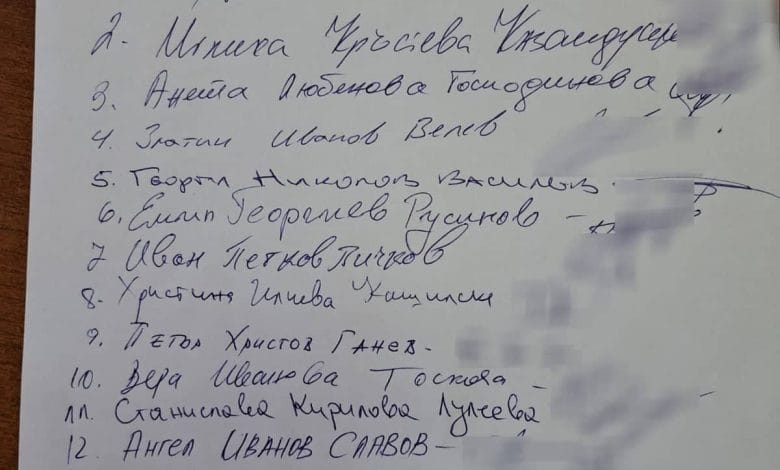 2. Кръстева
3. Анета Любенова Господинова
4. Златин Иванов Велев
5. Георги Николов Василев
6. Емил Георгиев Русинов
7 Иван Петков Пичков
8. Христина Илиева
9. Петър Христов Ганев -
10. Вера Иванова Тоскова -
11. Станислава Кирилова
12 Ангел Иванов Славов -